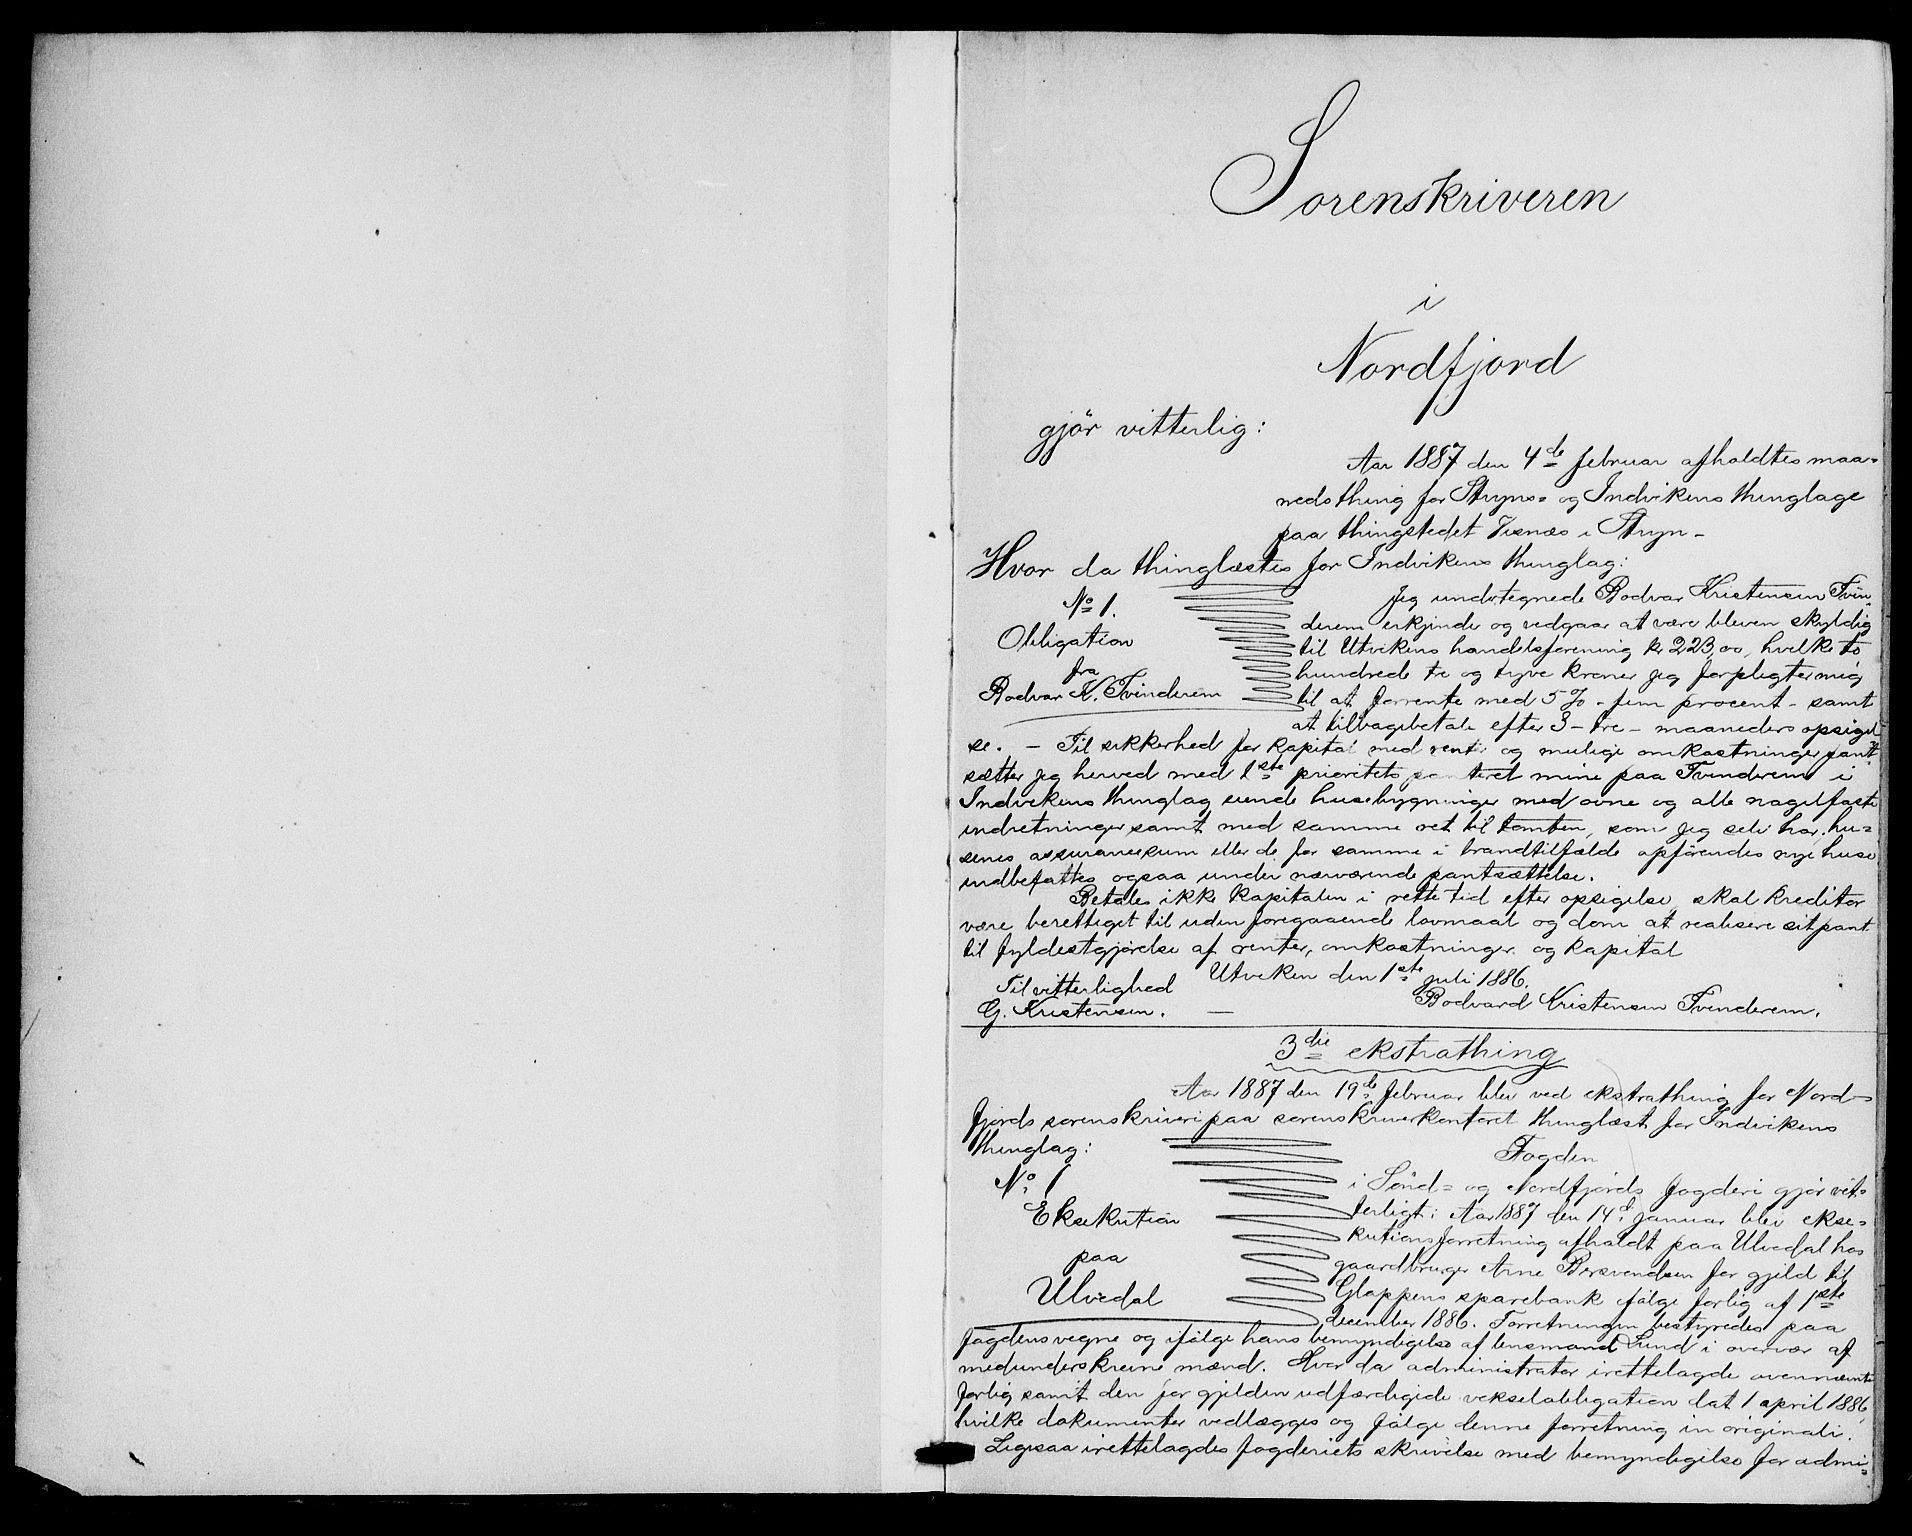 Sorenskriveren
i
Nordfjord
gjör vitterlig:
Aar 1887 den 4de februar afholdtes maa-
nedsthing for Stryns- og Indvikens thinglage
paa thingstedet Visnæs i Stryn -
Hvor da thinglæstes for Indvikens thinglag:
No 1.
Obligation
fra
Bodvar K. Tvinderem
Jeg undertegnede Bodvar Kristensen Tvin-
derem erkjender og vedgaar at være bleven skyldig
til Utvikens handelsforening kr 223,00, hvilke to
hundrede tre og tyve kroner jeg forpligter mig
til at forrente med 5 % - fem procent - samt
at tilbagebetale efter 3 - tre - maaneders opsigel
se. - Til sikkerhed for kapital med renter og mulige omkostninger pant
sætter jeg herved med 1ste prioritets panteret mine paa Tvinderem i
Indvikens thinglag eiende husebygninger med ovne og alle nagelfaste
indretninger samt med samme ret til tomten, som jeg selv har. hu-
senes assurancesum eller de for samme i brandtilfælde opförendes nye huse
indbefattes ogsaa under nærværende pantsættelse.
Betales ikke kapitalen i rette tid efter opsigelse, skal kreditor
være berettiget til uden foregaaende lovmaal og dom at realisere sit pant
til fyldestgjörelse af renter, omkostninger og kapital
Utviken den 1ste juli 1886.
Til vitterlighed
Bodvard Kristensen Tvinderem.
G. Kristensen. —
3die ekstrathing
Aar 1887 den 19de februar blev ved ekstrathing for Nord-
fjords sorenskriveri paa sorenskriverkontoret thinglæst for Indvikens
thinglag:
No. 1
Eksekution
paa
Ulvedal
Fogden
i Sönd- og Nordfjords fogderi gjör vit-
terligt: Aar 1887 den 14d. januar blev ekse-
kutionsforretning afholdt paa Ulvedal hos
gaardbruger Arne Bersvendsen for gjeld til
Gloppens sparebank ifölge forlig af 1ste
december 1886. Forretningen bestyredes paa
fogdens vegne og ifölge hans bemyndigelse af lensmand Sund i overvær af
medunderskrevne mænd. Hvor da administrator irettelagde ovennævnte
forlig samt den for gjelden udfærdigede vekselobligation dat 1 april 1886,
hvilke dokumenter vedlægges og fölge denne forretning in originali.
Ligesaa irettelagdes fogderiets skrivelse med bemyndigelse for admi-